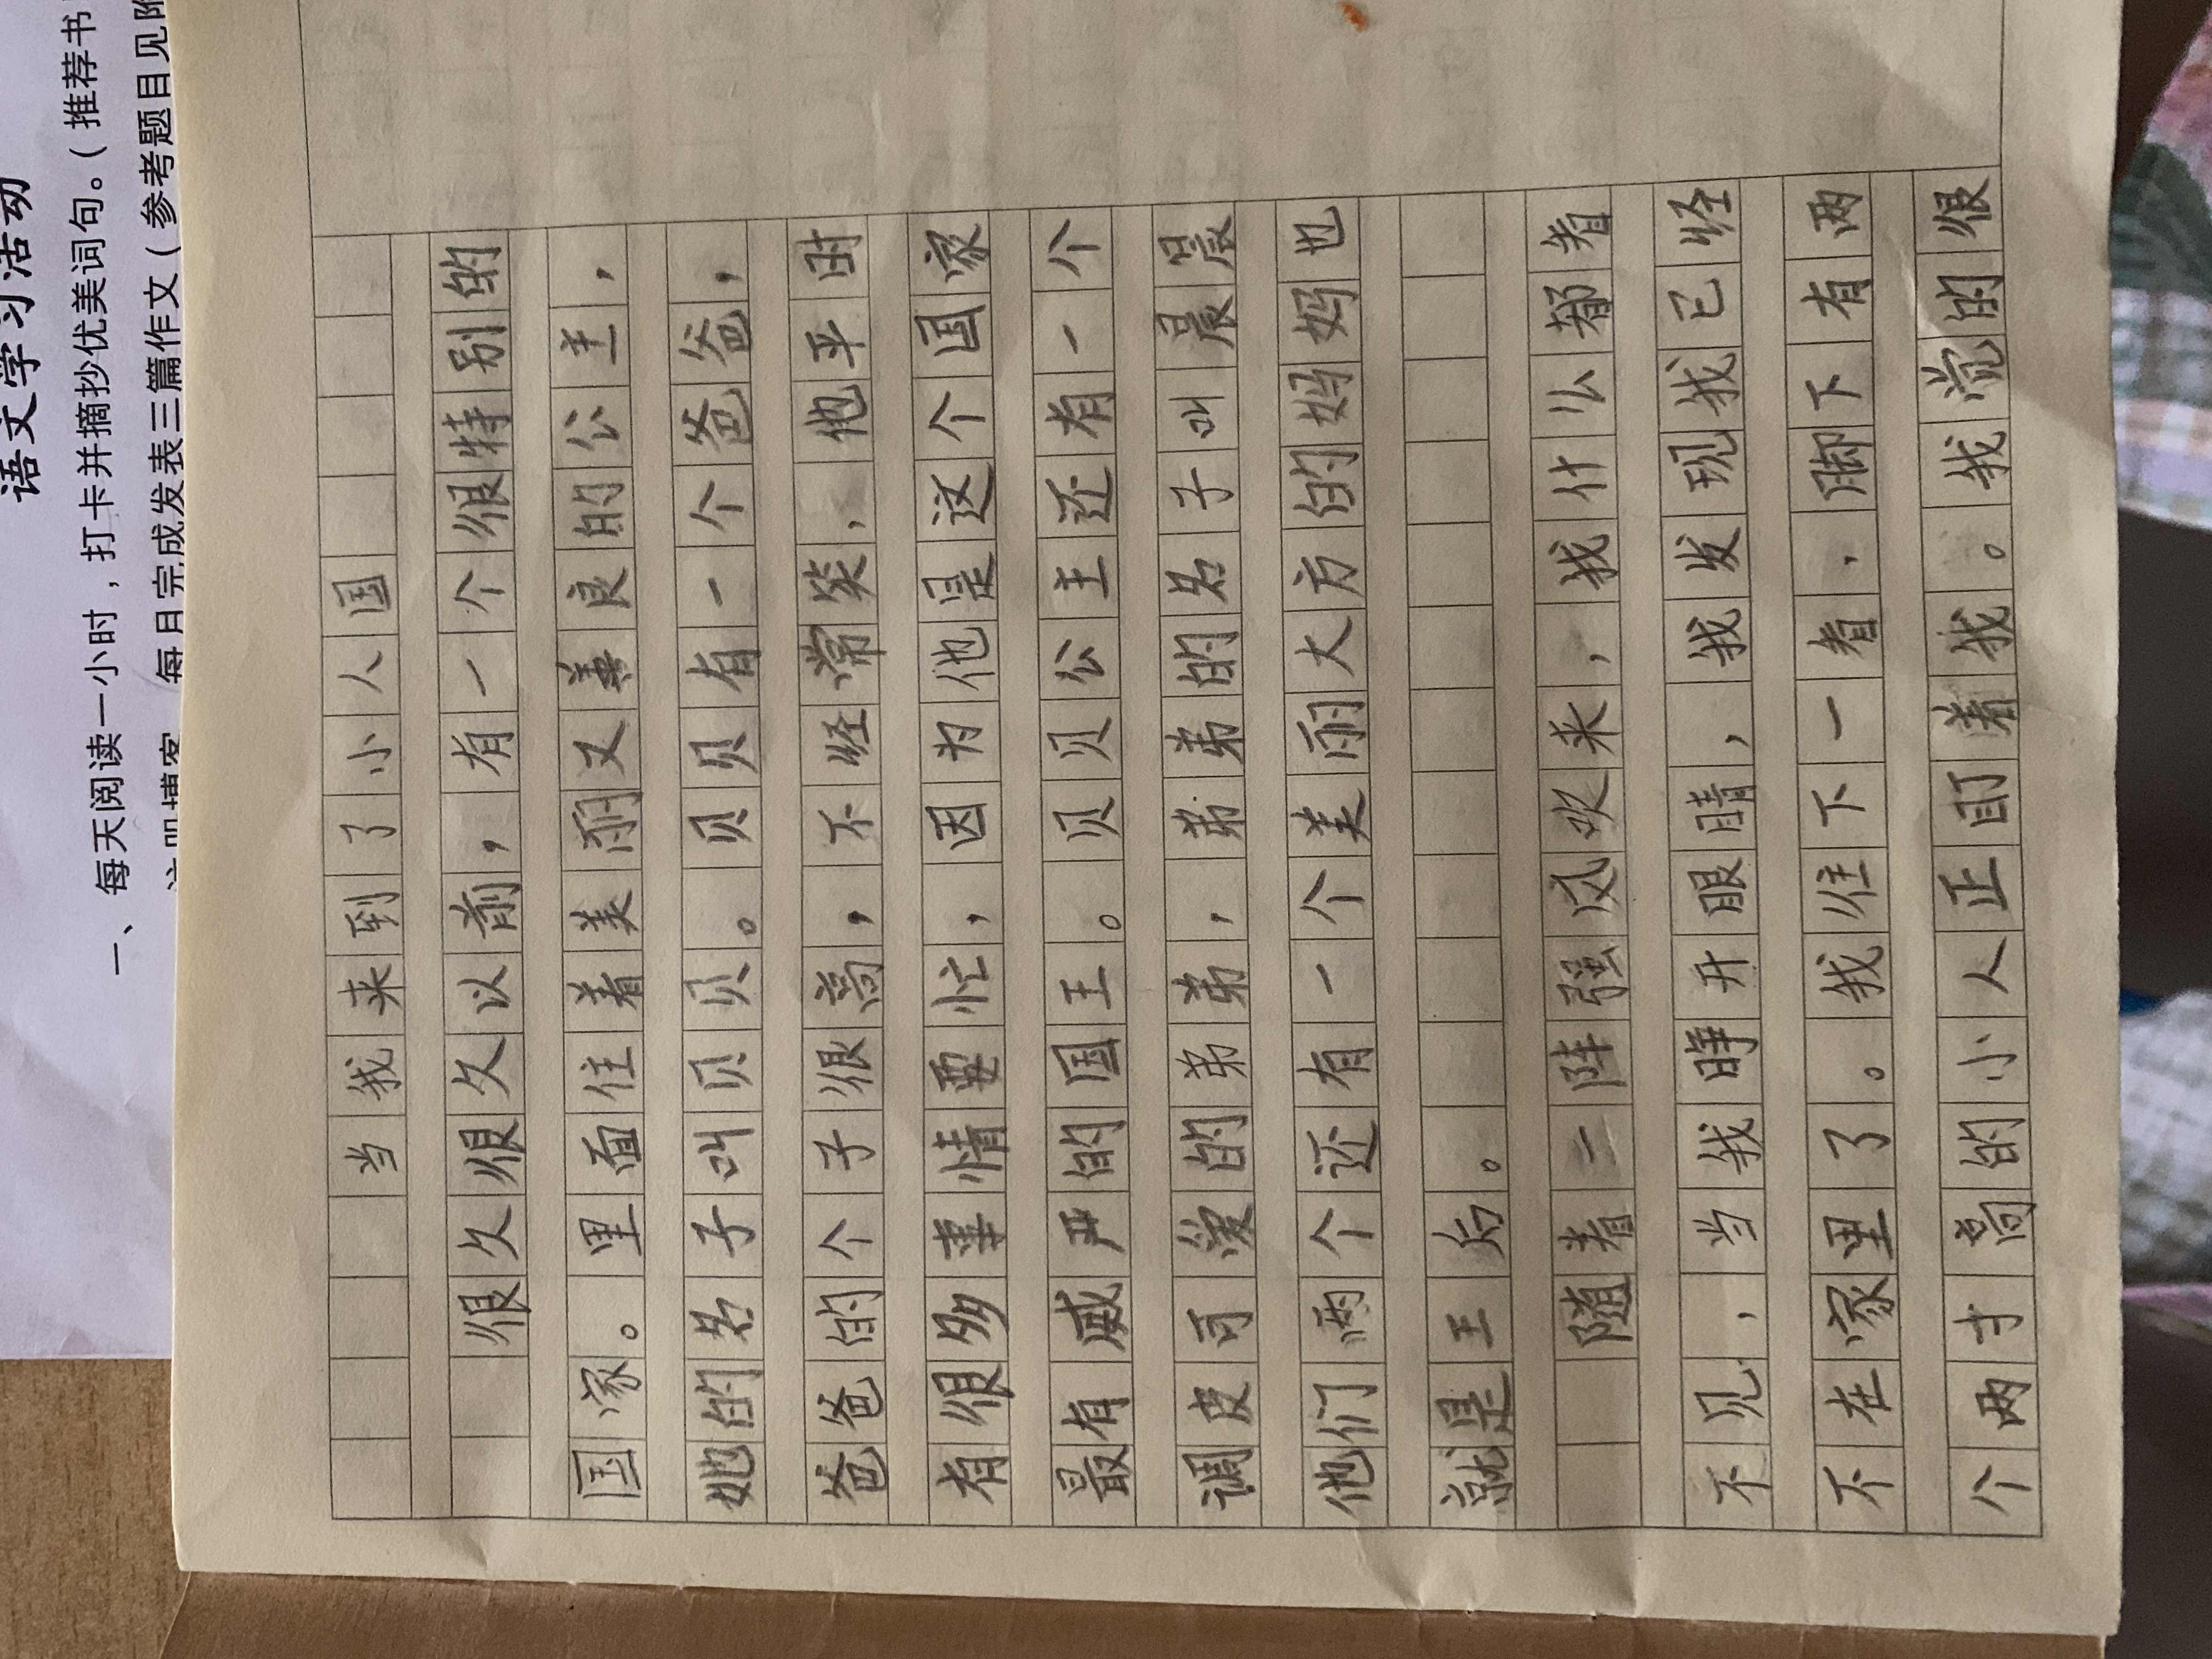 语文学习活动
一、每天阅读一小时，打卡并摘抄优美词句。（推荐书
每月完成发表三篇作文（参考题目见附
当我来到了小人国
很久很久以前，有一个很特别的
国家。里面住着美丽又善良的公主，
她的名子叫贝贝贝。贝贝有一个爸爸，
爸爸的个子很高，不经常笑，他平时
有很多事情要忙，因为他是这个国家
最有威严的国王。贝贝公主还有一个
调皮可爱的弟弟，弟弟的名子叫晨晨
他们两个还有一个美丽大方的妈妈也
就是王后。
随着一阵强风吹来，我什么都看
不见，当我睁开眼睛，我发现我已经
不在家里了。我往下一看，脚下有两
个两寸高的小人正盯着我。我觉的很